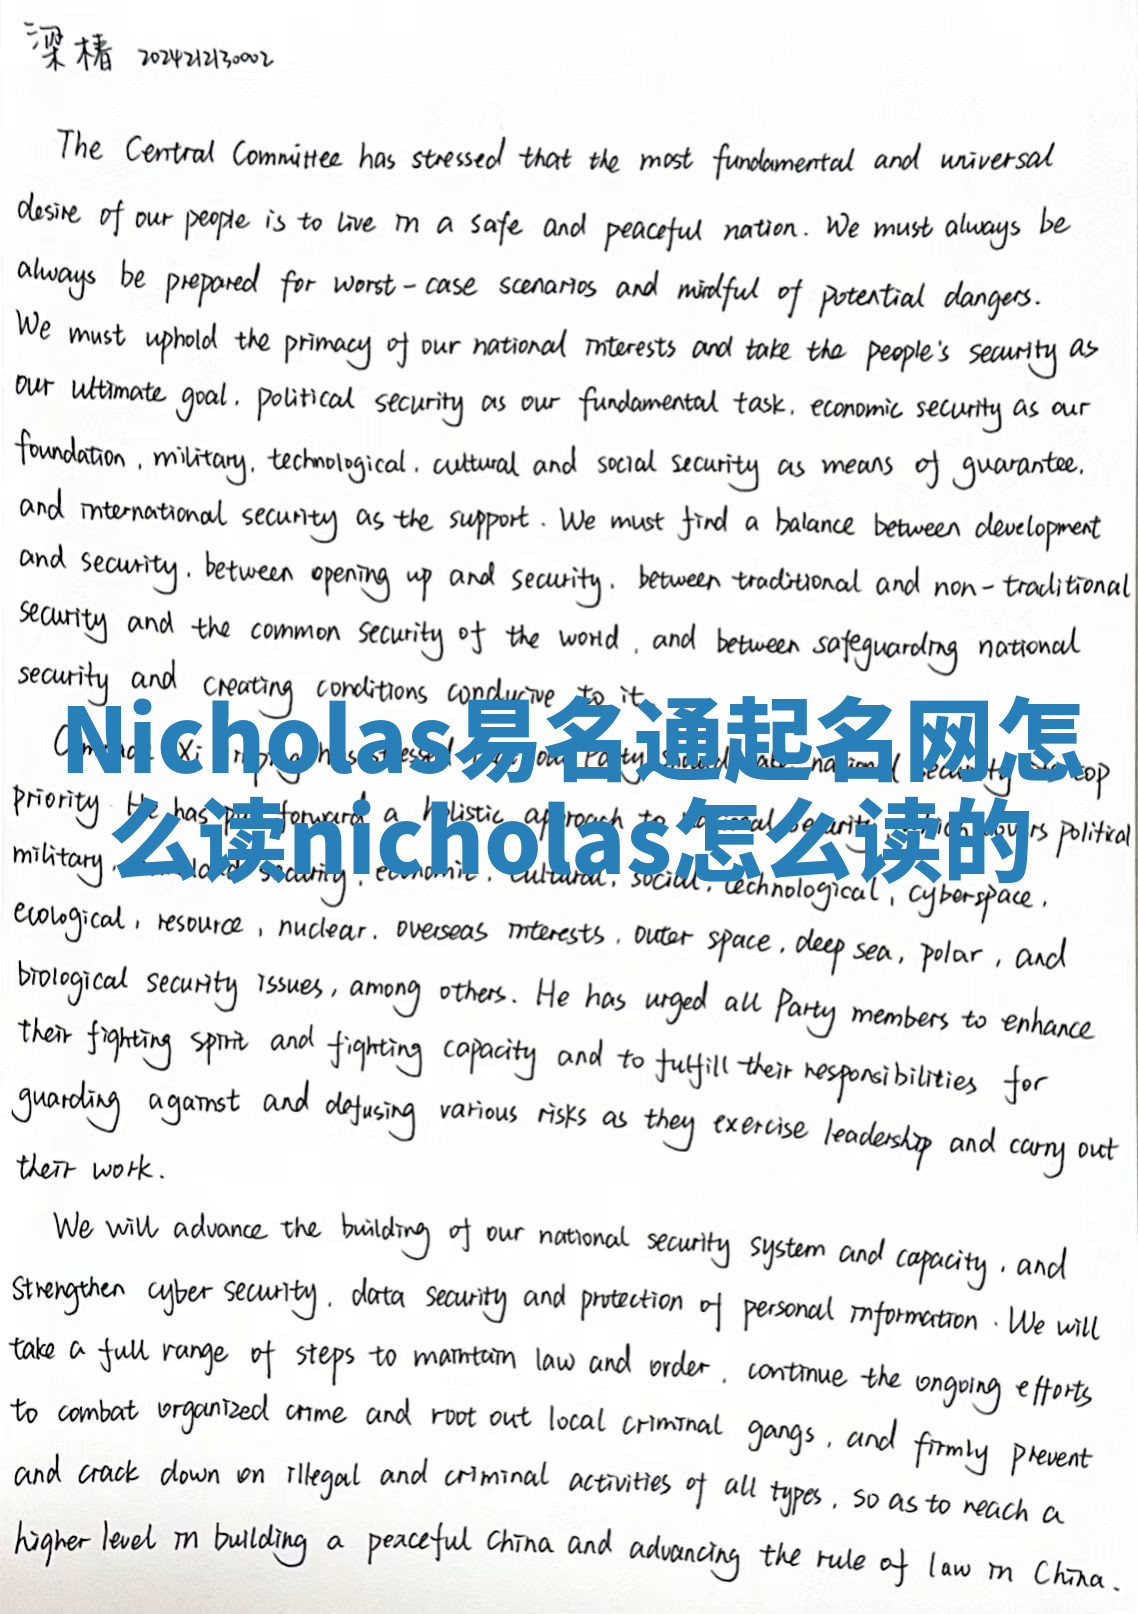 梁椿 2024212130002
The Central Committee has stressed that the most fundamental and universal
desire of our people is to live in a safe and peaceful nation. We must always be
always be prepared for worst-case scenarios and mindful of potential dangers.
We must uphold the primacy of our national interests and take the people's security as
our ultimate goal, political security as our fundamental task, economic security as our
foundation, military, technological, cultural and social security as means of guarantee,
and international security as the support. We must find a balance between development
and security, between opening up and security, between traditional and non-traditional
security and the common security of the world, and between safeguarding national
security and creating conditions conducive to it.
Xi has stressed our Party national security top
Nicholas易名通起名网怎
priority. He has put forward a holistic approach to national security, which covers political
么读nicholas怎么读的
military, security, economic, cultural, social, technological, cyberspace,
ecological, resource, nuclear, overseas interests, outer space, deep sea, polar, and
biological security issues, among others. He has urged all Party members to enhance
their fighting spirit and fighting capacity and to fulfill their responsibilities for
guarding against and defusing various risks as they exercise leadership and carry out
their work.
We will advance the building of our national security system and capacity, and
strengthen cyber security, data security and protection of personal information. We will
take a full range of steps to maintain law and order, continue the ongoing efforts
to combat organized crime and root out local criminal gangs, and firmly prevent
and crack down on illegal and criminal activities of all types, so as to reach a
higher level in building a peaceful China and advancing the rule of law in China.